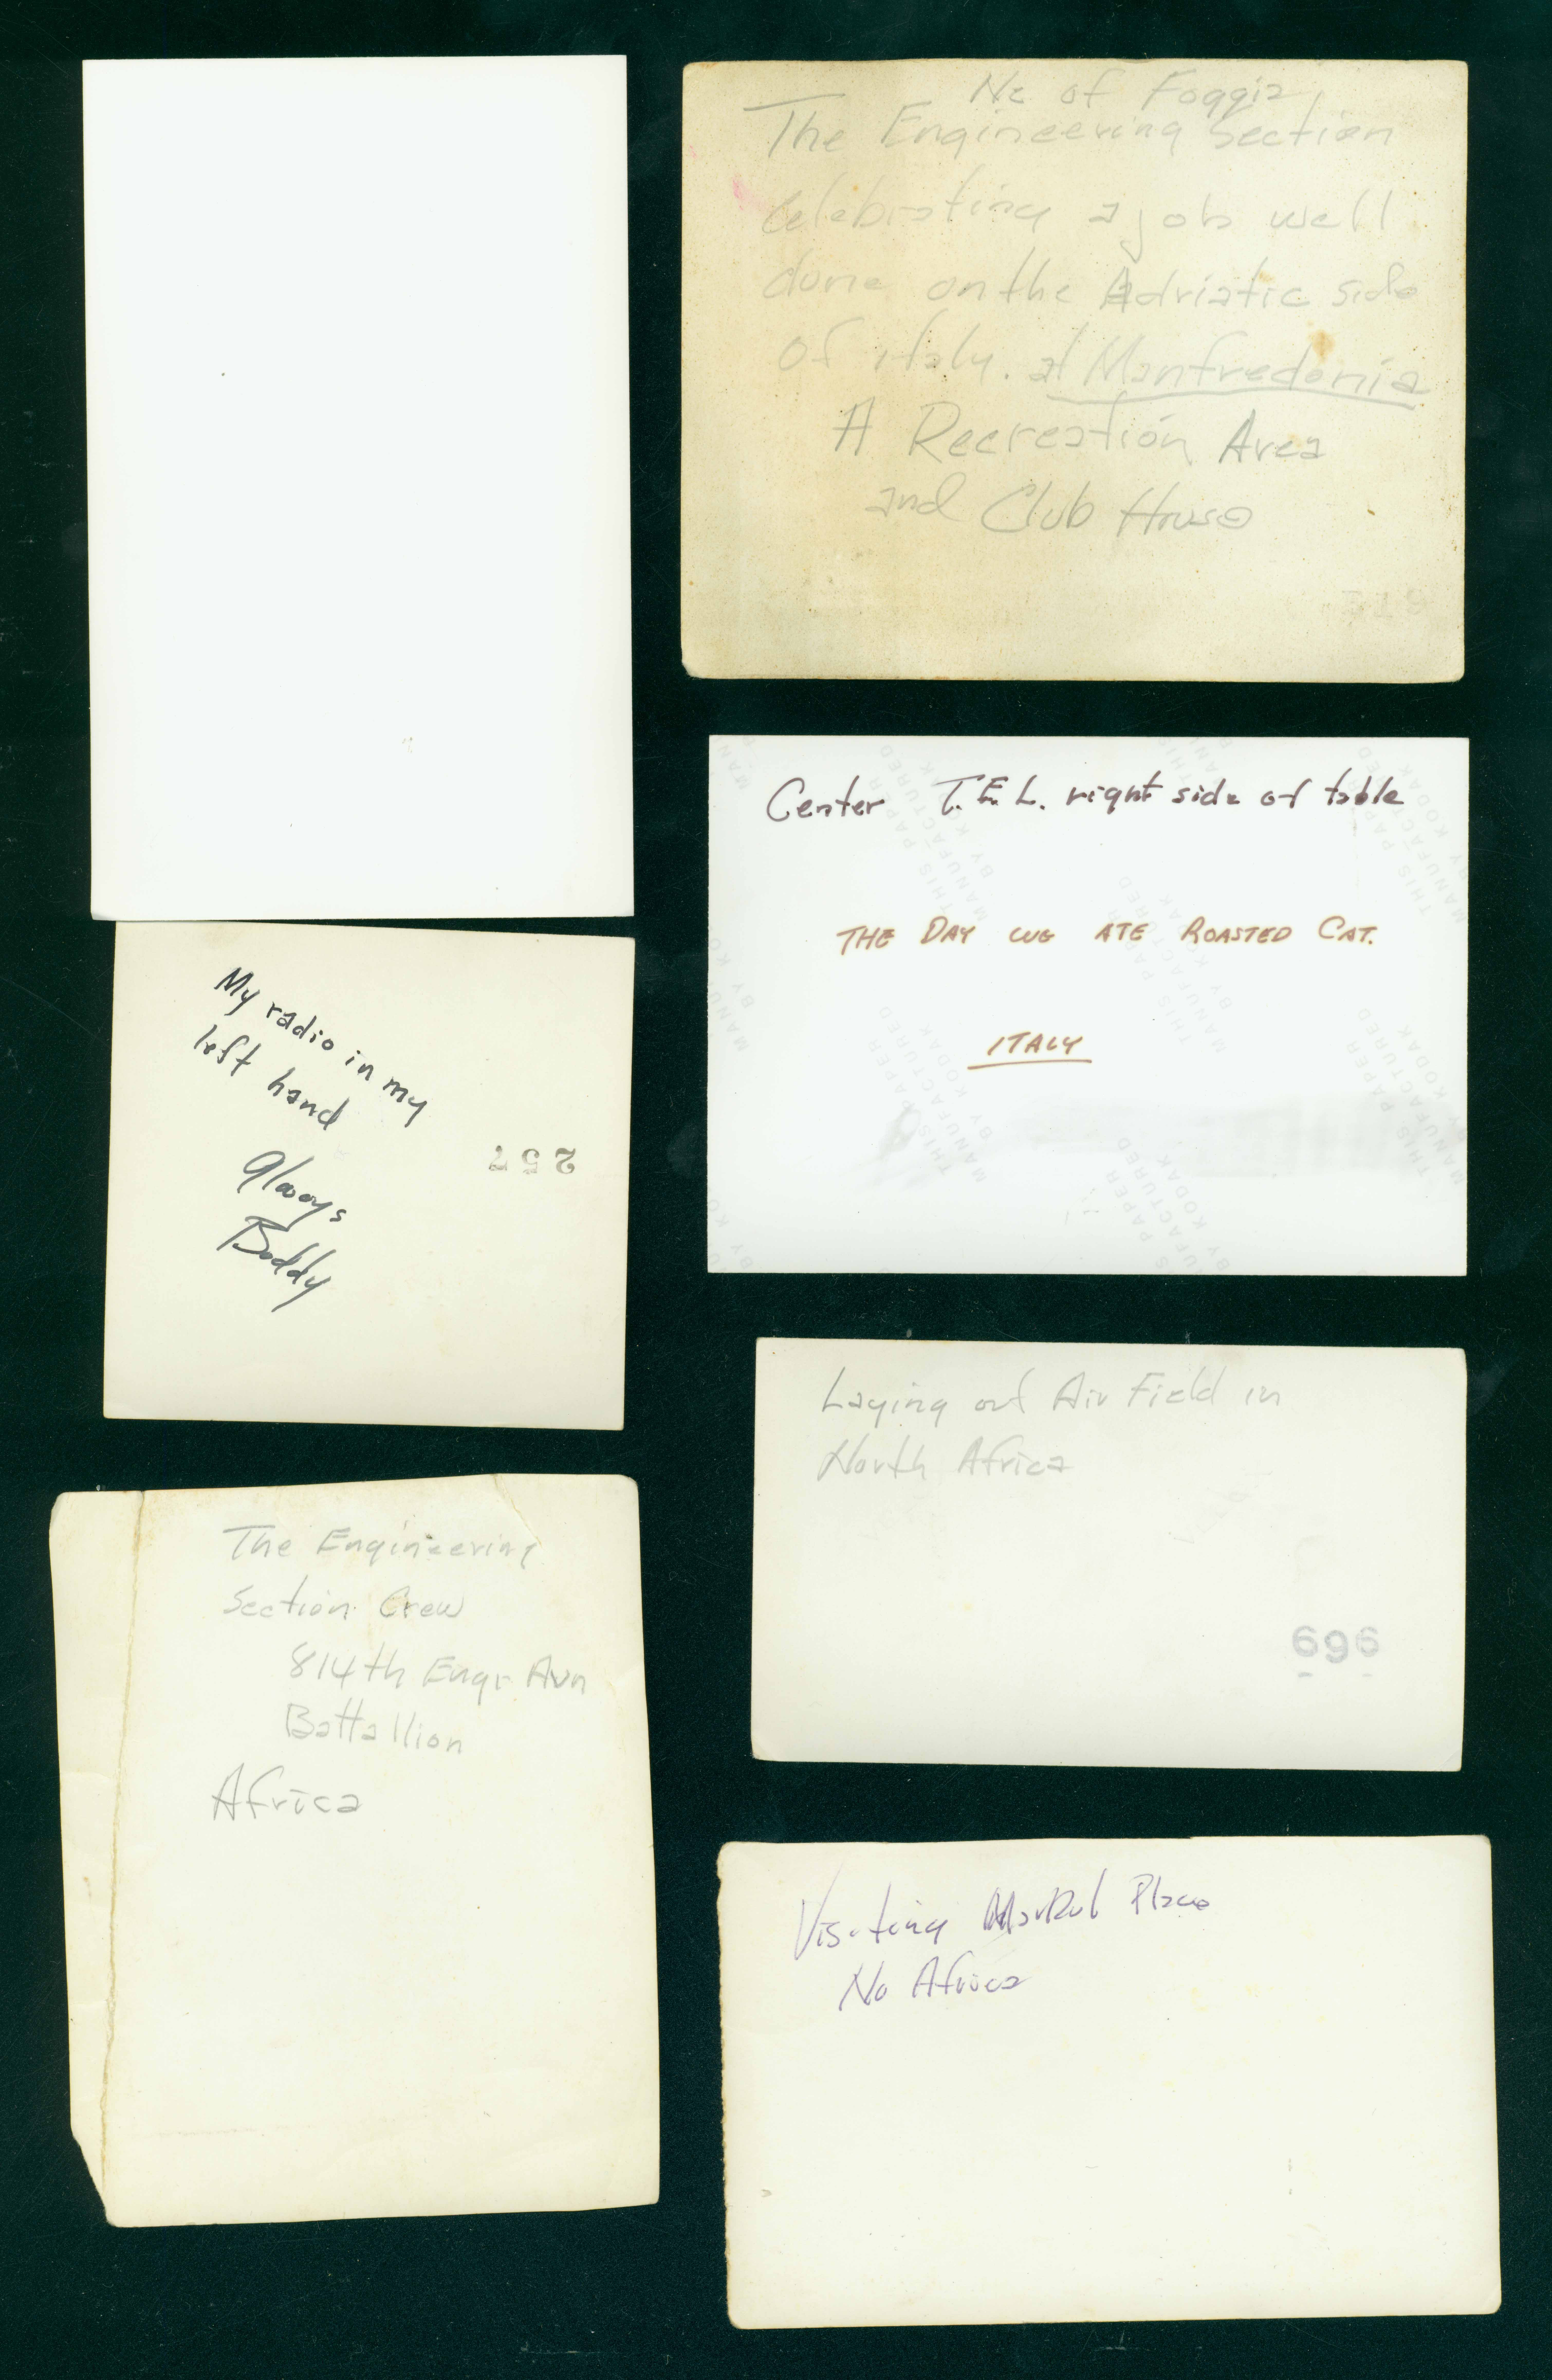 Ne of Foggia
The Engineering Section
Celebrating a job well
done on the Adriatic side
of italy. at Manfredonia
A Recreation Area
and Club House
Center T.E.L. right side of table
THE DAY WE ATE ROASTED CAT.
ITALY
THIS PAPER
MANUFACTURED
BY KODAK
My radio in my
left hand
Always
Buddy
257
Laying out Air Field in
North Africa
696
The Engineering
Section Crew
814th Engr Avn
Battallion
Africa
Visiting Market Place
No Africa